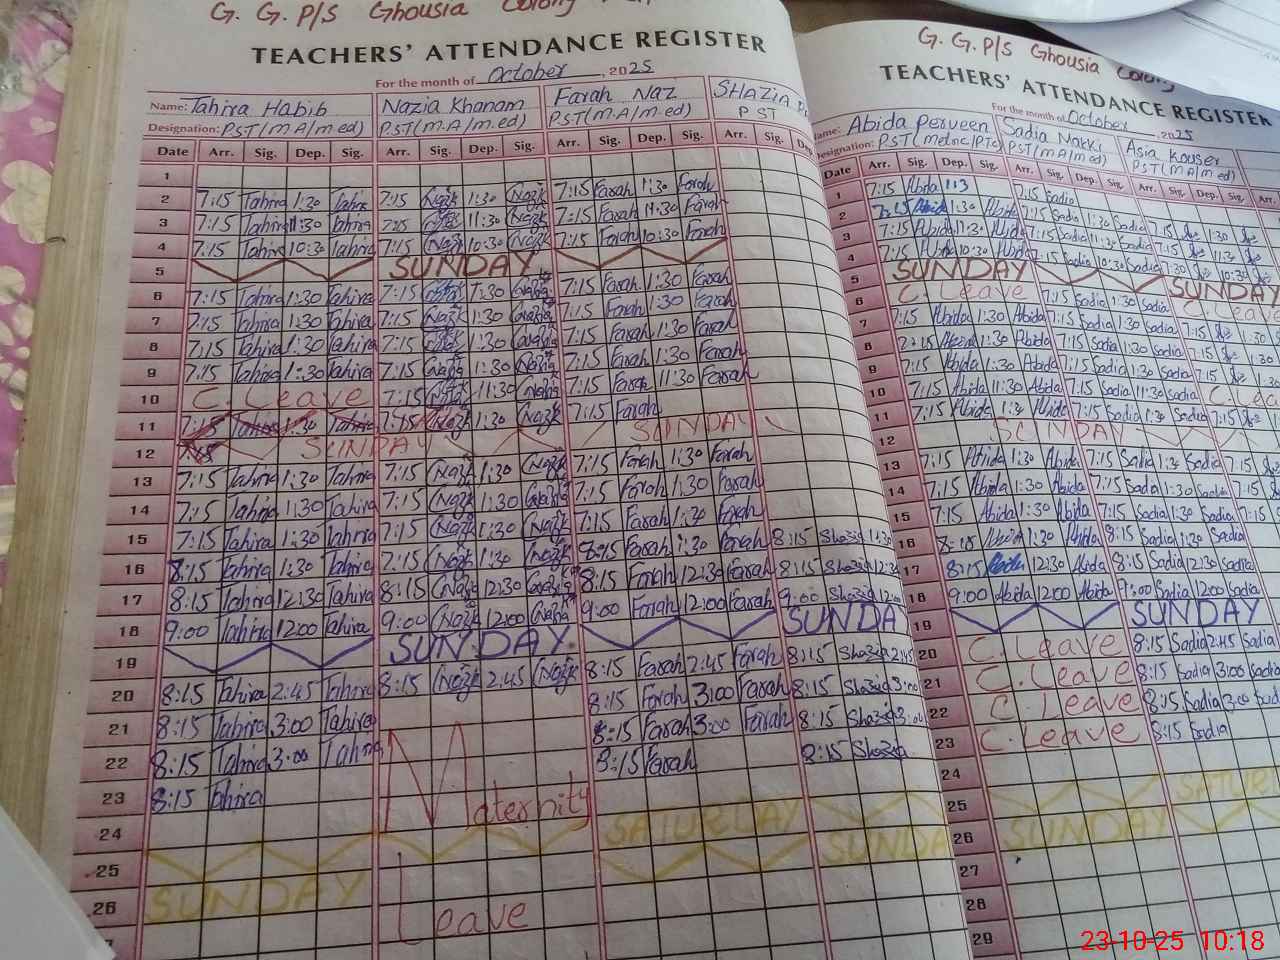 G. G. P/S Ghousia Colony
TEACHERS' ATTENDANCE REGISTER
For the month of October, 2025
Name: Tahira Habib Nazia Khanam Farah Naz SHAZIA
Designation: PST(M.A/m.ed) PST(M.A/m.ed) PST(M.A/m.ed) PST
Date Arr. Sig. Dep. Sig. Arr. Sig. Dep. Sig. Arr. Sig. Dep. Sig. Arr. Sig. Dep.
1
2 7:15 Tahira 1:30 Tahira 7:15 1:30 7:15 Farah 1:30 Farah
3 7:15 Tahira 11:30 Tahira 7:15 11:30 7:15 Farah 11:30 Farah
4 7:15 Tahira 10:30 Tahira 7:15 10:30 7:15 Farah 10:30 Farah
5 SUNDAY
6 7:15 Tahira 1:30 Tahira 7:15 1:30 7:15 Farah 1:30 Farah
7 7:15 Tahira 1:30 Tahira 7:15 1:30 7:15 Farah 1:30 Farah
8 7:15 Tahira 1:30 Tahira 7:15 1:30 7:15 Farah 1:30 Farah
9 7:15 Tahira 1:30 Tahira 7:15 1:30 7:15 Farah 1:30 Farah
10 C. Leave 7:15 11:30 7:15 Farah 11:30 Farah
11 7:15 Tahira 1:30 Tahira 7:15 1:30 7:15 Farah
12 SUNDAY SUNDAY
13 7:15 Tahira 1:30 Tahira 7:15 1:30 7:15 Farah 1:30 Farah
14 7:15 Tahira 1:30 Tahira 7:15 1:30 7:15 Farah 1:30 Farah
15 7:15 Tahira 1:30 Tahira 7:15 1:30 7:15 Farah 1:30 Farah
16 8:15 Tahira 1:30 Tahira 7:15 1:30 8:15 Farah 1:30 Farah 8:15 Shazia 1:30
17 8:15 Tahira 12:30 Tahira 8:15 12:30 8:15 Farah 12:30 Farah 8:15 Shazia 12:30
18 9:00 Tahira 12:00 Tahira 9:00 12:00 9:00 Farah 12:00 Farah 9:00 Shazia 12:00
19 SUNDAY SUNDA
20 8:15 Tahira 2:45 Tahira 8:15 2:45 8:15 Farah 2:45 Farah 8:15 Shazia 2:45
21 8:15 Tahira 3:00 Tahira 8:15 Farah 3:00 Farah 8:15 Shazia 3:00
22 8:15 Tahira 3:00 Tahira 8:15 Farah 3:00 Farah 8:15 Shazia 3:00
23 8:15 Tahira Maternity 8:15 Farah 8:15 Shazia
24
25 SATURDAY
26 SUNDAY Leave SUNDA
G. G. P/S Ghousia Colony
TEACHERS' ATTENDANCE REGISTER
For the month of October, 2025
Name: Abida Perveen Sadia Nakki Asia Kouser
Designation: PST(metric/PTC) PST(M.A/m.ed) PST(M.A/m.ed)
Date Arr. Sig. Dep. Sig. Arr. Sig. Dep. Sig. Arr. Sig. Dep. Sig. Arr.
1 7:15 Abida 7:15 Sadia
2 7:15 Abida 1:30 Abida 7:15 Sadia 1:30 Sadia 7:15 1:30
3 7:15 Abida 11:30 Abida 7:15 Sadia 11:30 Sadia 7:15 11:30
4 7:15 Abida 10:30 Abida 7:15 Sadia 10:30 Sadia 10:30
5 SUNDAY SUNDAY
6 C. Leave 7:15 Sadia 1:30 Sadia C. Leave
7 7:15 Abida 1:30 Abida 7:15 Sadia 1:30 Sadia 7:15 1:30
8 7:15 1:30 Abida 7:15 Sadia 1:30 Sadia 7:15 1:30
9 7:15 Abida 1:30 Abida 7:15 Sadia 1:30 Sadia 7:15 1:30
10 7:15 Abida 11:30 Abida 7:15 Sadia 11:30 Sadia C. Leav
11 7:15 Abida 1:30 Abida 7:15 Sadia 1:30 Sadia 7:15
12 SUNDAY
13 7:15 Abida 1:30 Abida 7:15 Sadia 1:30 Sadia 7:15
14 7:15 Abida 1:30 Abida 7:15 Sadia 1:30 Sadia 7:15
15 7:15 Abida 1:30 Abida 7:15 Sadia 1:30 Sadia
16 8:15 Abida 1:30 Abida 8:15 Sadia 1:30 Sadia
17 8:15 Abida 12:30 Abida 8:15 Sadia 12:30 Sadia
18 9:00 Abida 12:00 Abida 9:00 Sadia 12:00 Sadia
19 SUNDAY
20 C. Leave 8:15 Sadia 2:45 Sadia
21 C. Leave 8:15 Sadia 3:00 Sadia
22 C. Leave 8:15 Sadia 3:00 Sadia
23 C. Leave 8:15 Sadia
24
25 SATUR
26 SUNDAY
27
28
29
23-10-25 10:18